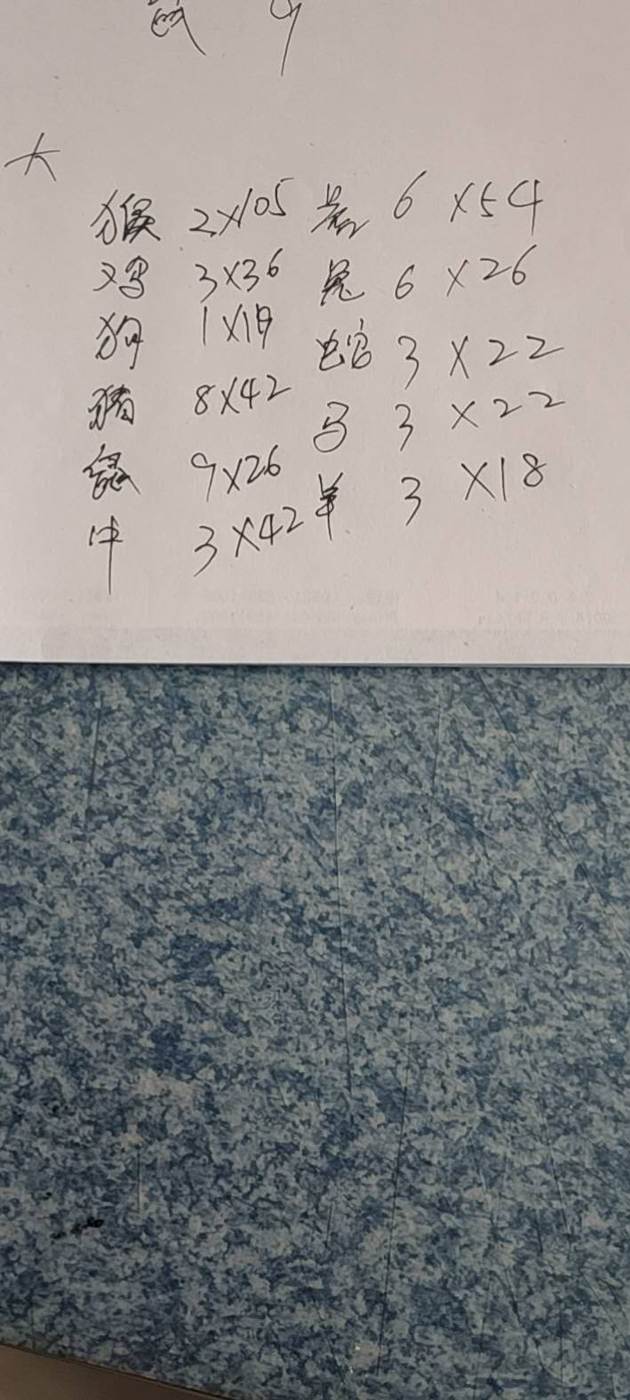 鼠 9
大
猴 2×105 虎 6 ×54
鸡 3×36 兔 6 ×26
狗 1×18 蛇 3 ×22
猪 8×42 马 3 ×22
鼠 9×26 羊 3 ×18
牛 3×42